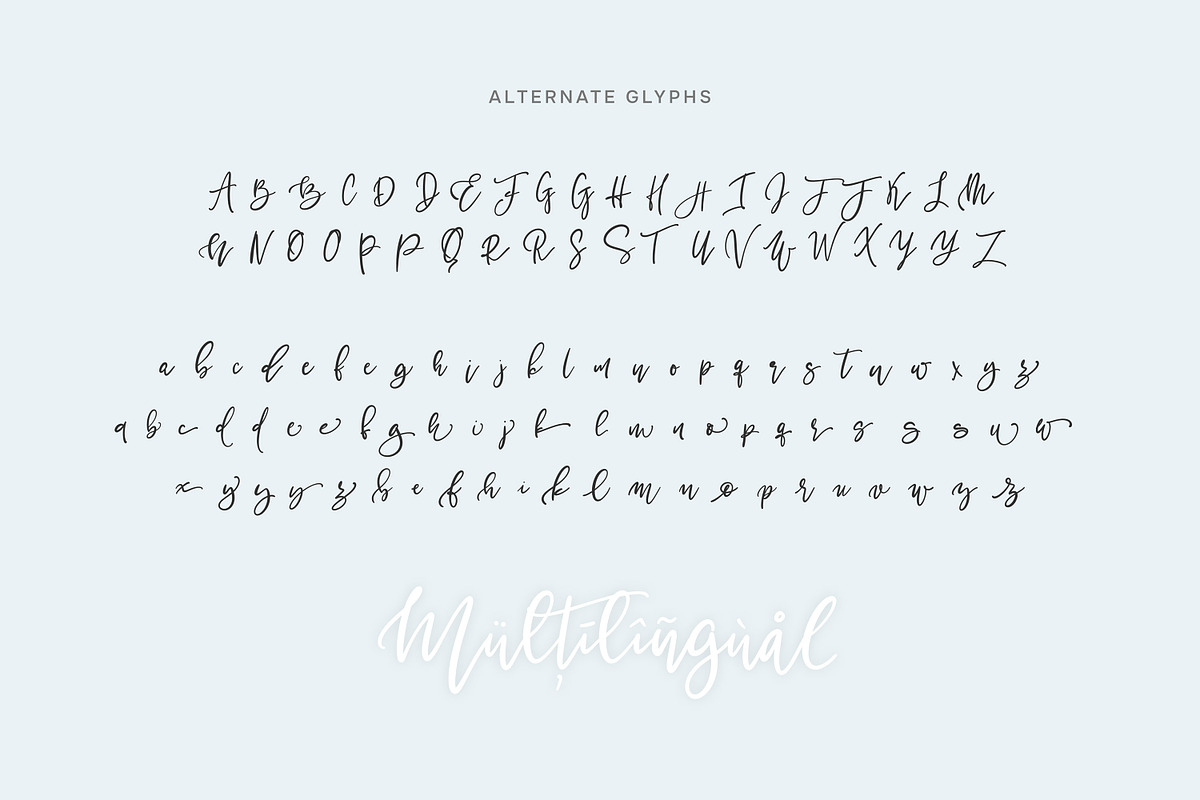 ALTERNATE GLYPHS
A B B C D D E F G G H H H I J J J K L M
N N O O P P Q R R S S T U V W W X Y Y Z
a b c d e f e g h i j k l m n o p q r s t u w x y z
a b c d d e e f g h i j k l m n o p q r s s s u w
x y y y z b e f h i k l m n o p r u v w y z
Mülțīlîñgùål